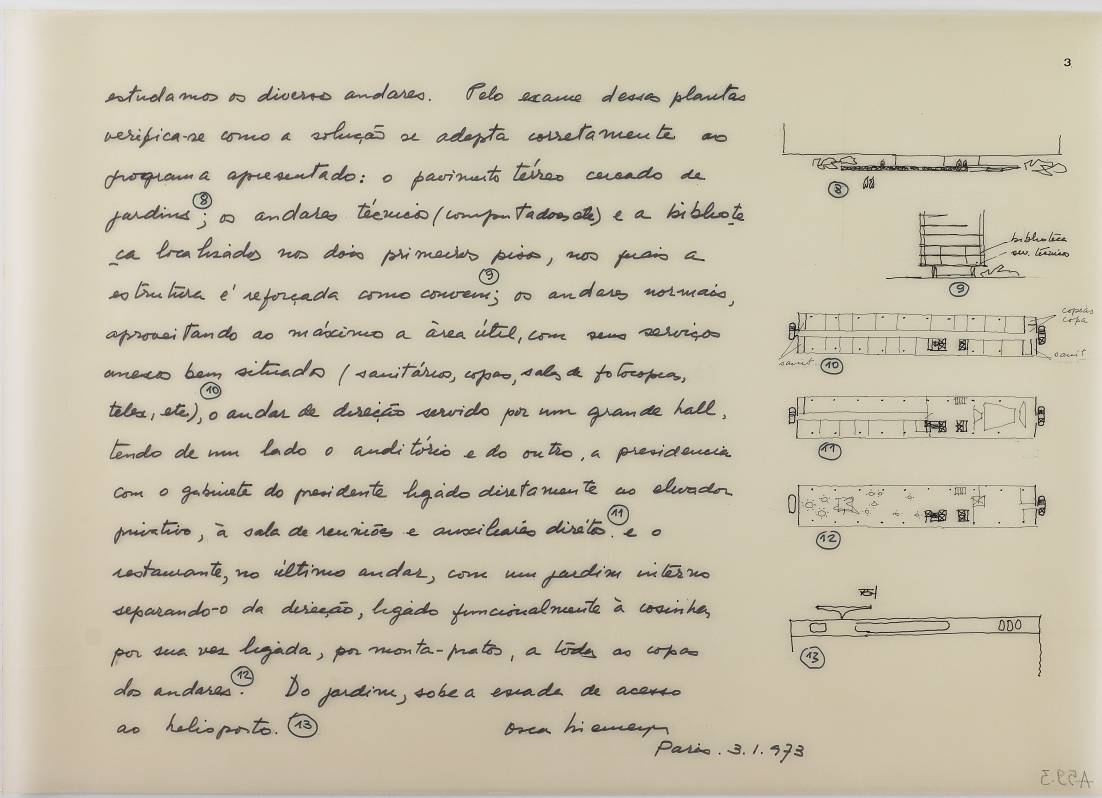 3
estudamos os diversos andares. Pelo exame dessas plantas
verifica-se como a solução se adapta corretamente ao
programa apresentado: o pavimento térreo cercado de
jardins 8; os andares técnicos (computadores etc) e a bibliote
ca localizados nos dois primeiros pisos, nos quais a
estrutura é reforçada como convem 9; os andares normais,
aproveitando ao máximo a área útil, com seus serviços
anexos bem situados (sanitários, copas, salas de fotocopias,
telex, etc) 10, o andar de direção servido por um grande hall,
tendo de um lado o auditório e do outro, a presidencia
com o gabinete do presidente ligado diretamente ao elevador
privativo, à sala de reuniões e auxiliares diretos 11. e o
restaurante, no último andar, com um jardim interno
separando-o da direção, ligado funcionalmente à cosinha,
por sua vez ligada, por monta-pratos, a todas as copas
dos andares. 12 Do jardim, sobe a escada de acesso
ao helioporto. 13
Oscar Niemeyer
Paris. 3.1.973
8
biblioteca
serv. técnicos
9
copias
copa
sanit.
sanit
10
11
12
13
A59.3